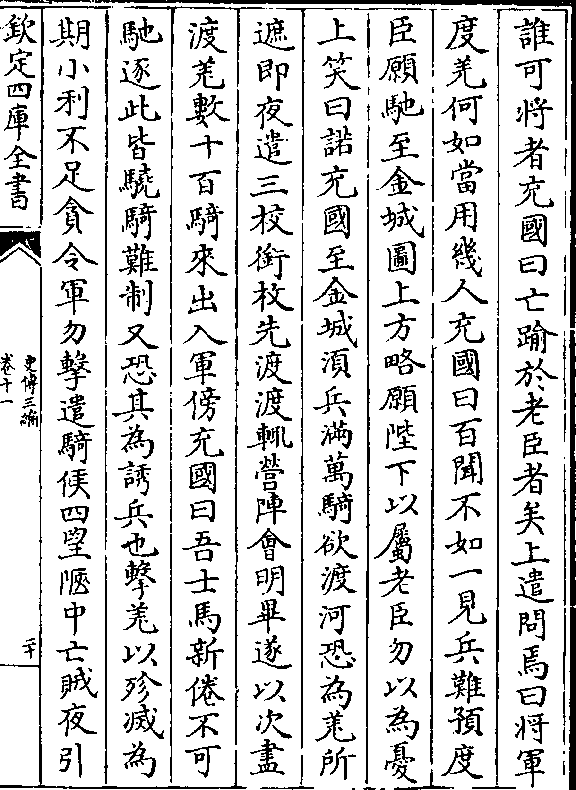 誰可將者充國曰亡踰於老臣者矣上遣問焉曰將軍
度羌何如當用幾人充國曰百聞不如一見兵難預度
臣願馳至金城圖上方略願陛下以屬老臣勿以為憂
上笑曰諾充國至金城湏兵滿萬騎欲渡河恐為羌所
遮即夜遣三校銜枚先渡渡輒營陣會明畢遂以次盡
渡羌數十百騎來出入軍傍充國曰吾士馬新倦不可
馳逐此皆驍騎難制又恐其為誘兵也擊羌以殄滅為
期小利不足貪令軍勿擊遣騎候四望陿中亡賊夜引
欽定四庫全書
史傳三編
卷十一
二十